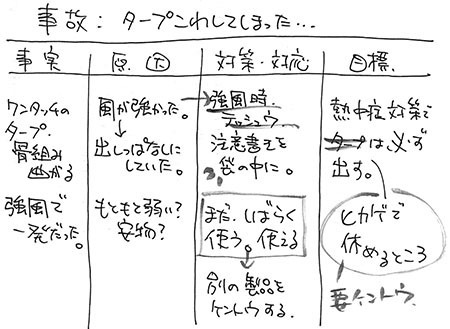 事故：タープこわしてしまった…
事実
原因
対策・対応
目標
ワンタッチの
タープ.
骨組み
曲がる
強風で
一発だった。
風が強かった。
↓
出しっぱなしに
していた。
もともと弱い?
安物?
→強風時.
テッシュウ
注意書きを
袋の中に。
まだ.しばらく
使う。使える
↓
別の製品を
ケントウする.
熱中症対策で
タープは必ず
出す。
ヒカゲで
休めるところ
要ケントウ.